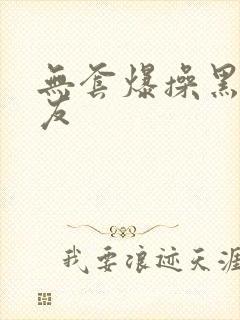 無套爆操黑
友
我要浪迹天涯